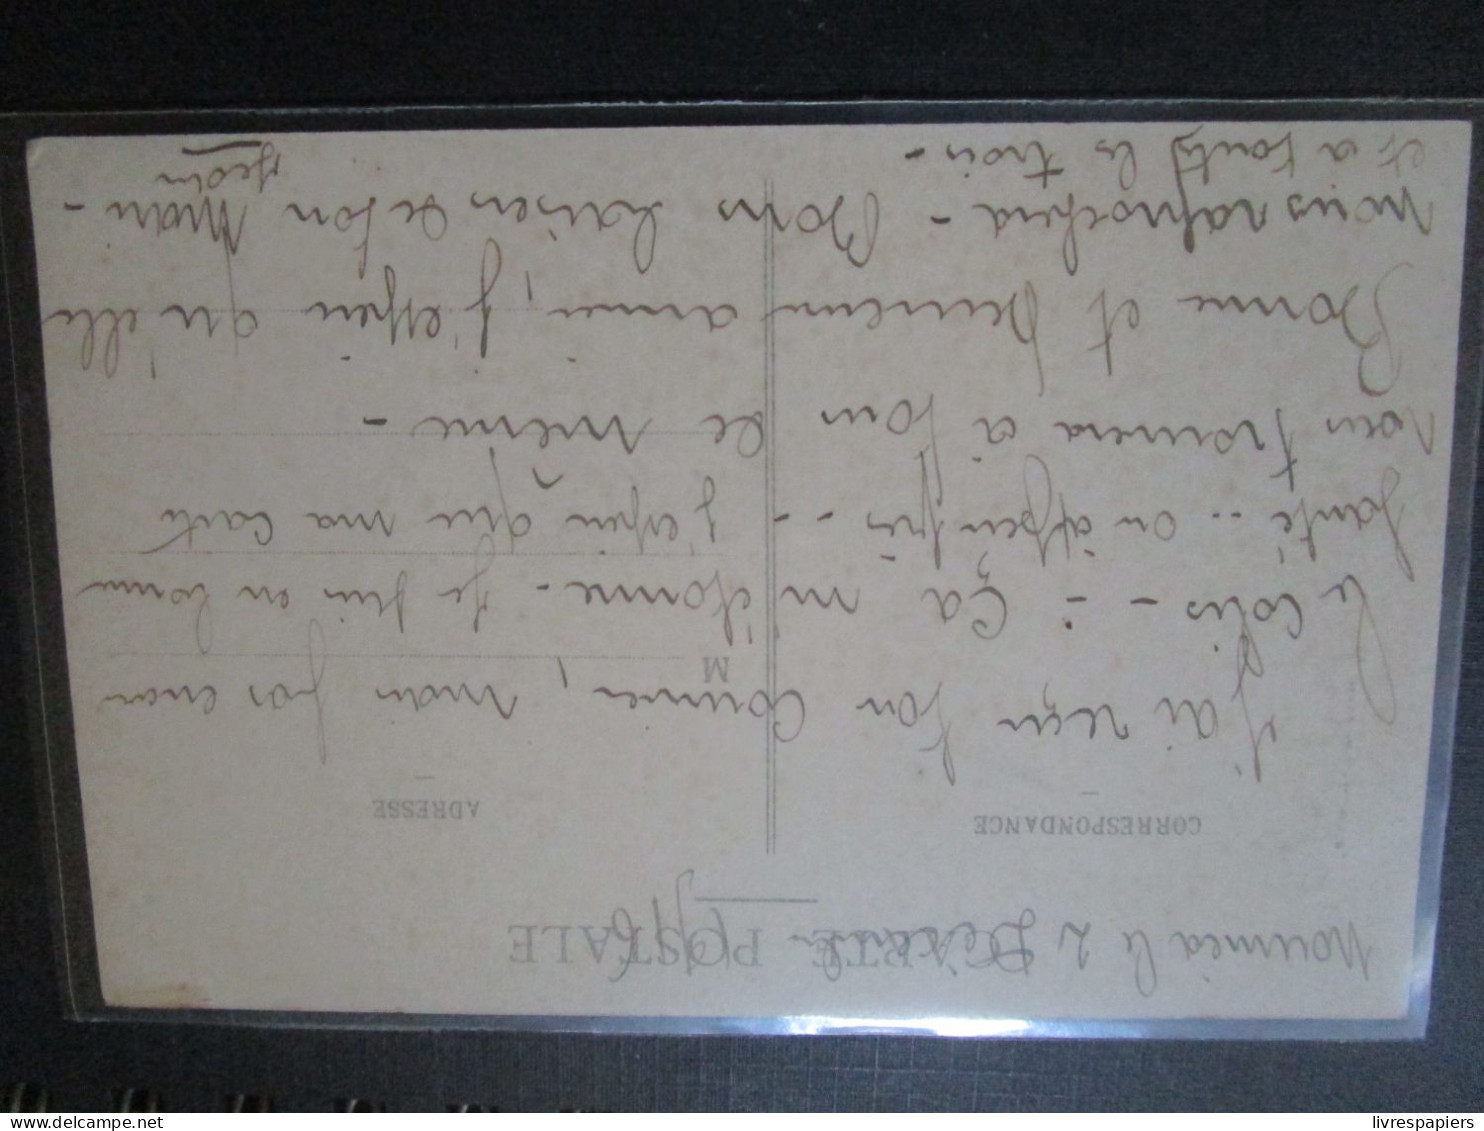 CARTE POSTALE
Nouméa le 2
CORRESPONDANCE
ADRESSE
M
J'ai reçu ton courrier, mais pas encore
le colis - - Ça m'étonne - Je suis en bonne
santé .. ou à peu près - - J'espère que ma carte
vous trouvera à tous de même -
Bonne et heureuse année, j'espère qu'elle
nous rapprochera - Bons baisers de ton Mari -
et à toutes les trois - Jean
livrespapiers